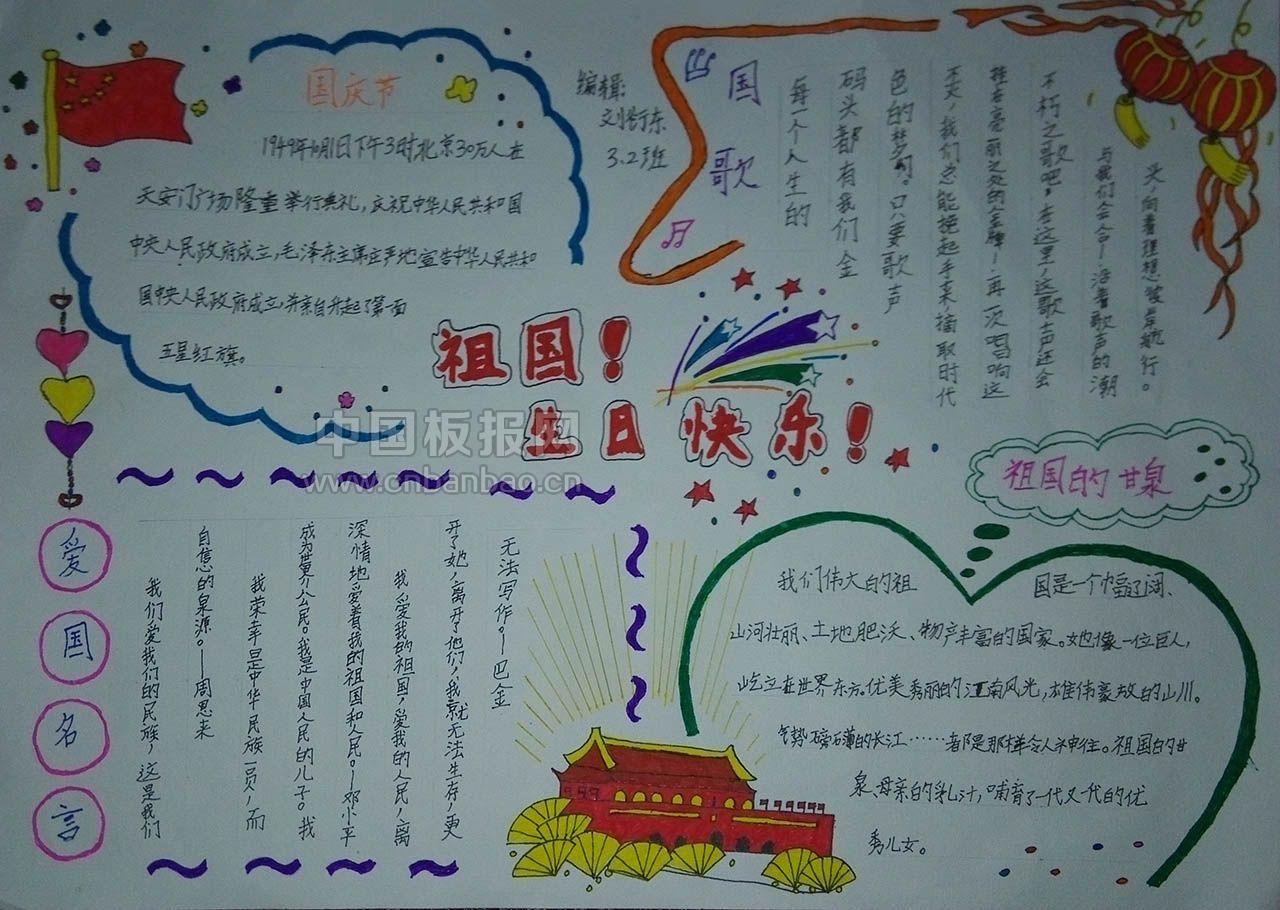 国庆节
1949年10月1日下午3时,北京30万人在
天安门广场隆重举行典礼,庆祝中华人民共和国
中央人民政府成立,毛泽东主席庄严地宣告中华人民共和
国中央人民政府成立,并亲自升起了第一面
五星红旗。
编辑:
刘衍东
3.2班
国歌
每一个人生的
码头都有我们金
色的梦幻。只要歌声
不灭,我们总能挽起手来,摘取时代
挂在亮丽之处的金牌!再一次唱响这
不朽之歌吧,在这里,这歌声还会
与我们会合——沿着歌声的潮
头,向着理想彼岸航行。
祖国!
生日快乐!
中国板报网
www.cnbanbao.cn
爱国名言
我们爱我们的民族,这是我们
自信的泉源。——周恩来
我荣幸是中华民族一员,而
成为世界公民。我是中国人民的儿子。我
深情地爱着我的祖国和人民。——邓小平
我爱我的祖国,爱我的人民,离
开了她,离开了他们,我就无法生存,更
无法写作。——巴金
祖国的甘泉
我们伟大的祖国是一个幅辽阔、
山河壮丽、土地肥沃、物产丰富的国家。她像一位巨人,
屹立在世界东方。优美秀丽的江南风光,雄伟豪放的山川。
气势磅礴的长江……都是那样令人神往。祖国的甘
泉、母亲的乳汁,哺育了一代又一代的优
秀儿女。